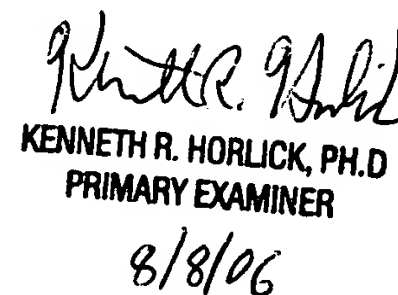 Kenneth R. Horlick
KENNETH R. HORLICK, PH.D
PRIMARY EXAMINER
8/8/06